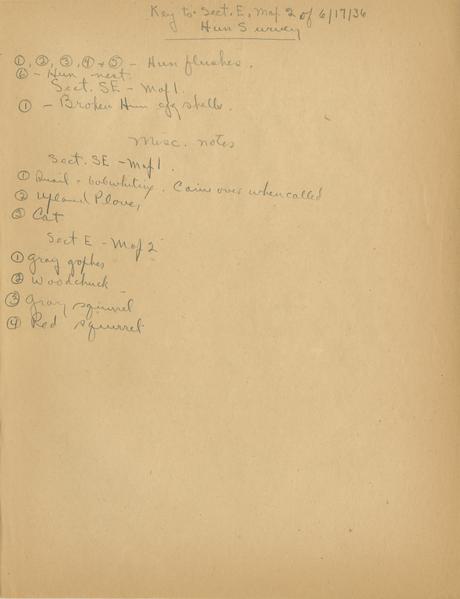 Key to Sect. E, Map 2 of 6/17/36
Hun Survey
①, ②, ③, ④ + ⑤ - Hun flushes.
⑥ - Hun nest.
Sect. SE - Map 1.
① - Broken Hun egg shells.
Misc. notes
Sect. SE - Map 1.
① Quail - bobwhiting. Came over when called
② Upland Plover
③ Cat
Sect E - Map 2
① Gray gopher
② Woodchuck
③ Gray squirrel
④ Red squirrel